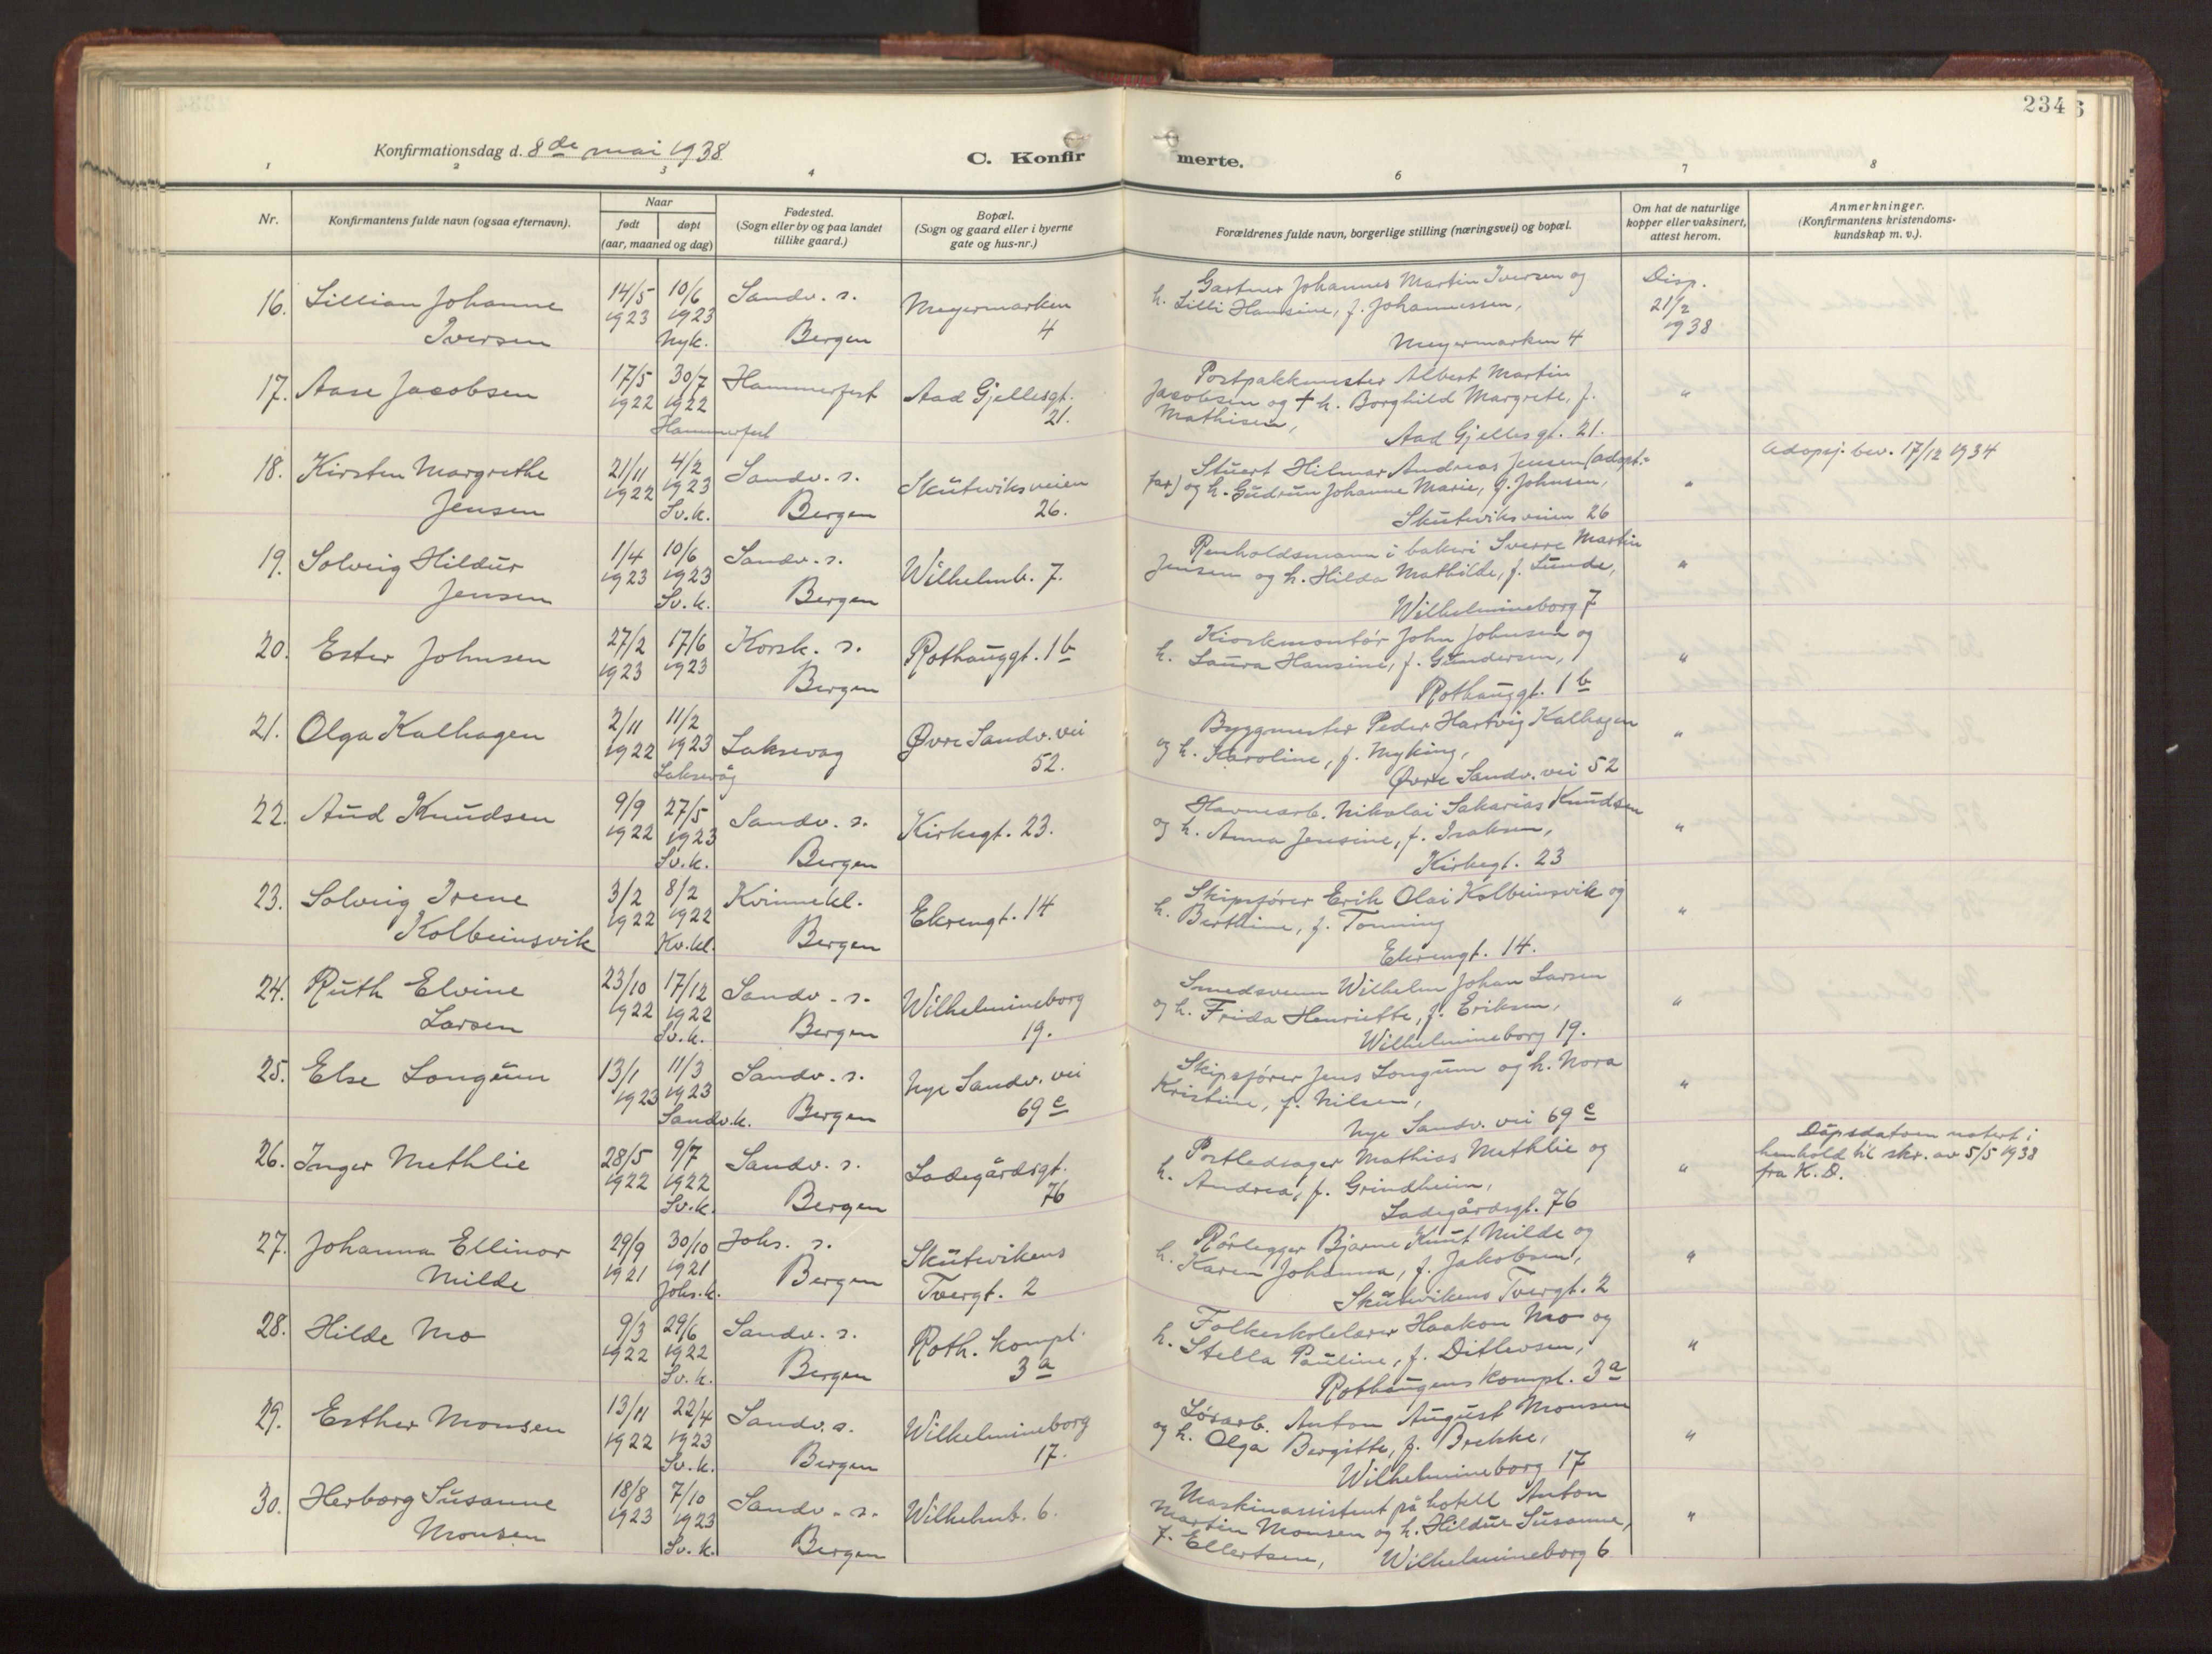 234
Konfirmationsdag d. 8de mai 1938
C. Konfirmerte.
1 2 3 4 6 7 8
Nr.
Konfirmantens fulde navn (ogsaa efternavn).
Naar
født døpt
(aar, maaned og dag)
Fødested.
(Sogn eller by og paa landet
tillike gaard.)
Bopæl.
(Sogn og gaard eller i byerne
gate og hus-nr.)
Forældrenes fulde navn, borgerlige stilling (næringsvei) og bopæl.
Om hat de naturlige
kopper eller vaksinert,
attest herom.
Anmerkninger.
(Konfirmantens kristendoms-
kundskap m. v.).
16. Lillian Johanne
Iversen
14/5
1923
10/6
1923
Nyk.
Sandv. s.
Bergen
Meyermarken
4
Gartner Johannes Martin Iversen og
h. Lilli Hansine, f. Johannessen,
Meyermarken 4
Disp.
21/2
1938
17. Aase Jacobsen
17/5
1922
30/7
1922
Hammerfest
Hammerfest
Aad Gjellesgt.
21.
Postpakkmester Albert Martin
Jacobsen og + h. Borghild Margrete, f.
Mathisen,
Aad Gjellesgt. 21.
"
18. Kirsten Margrethe
Jensen
21/11
1922
4/2
1923
Sv.k.
Sandv. s.
Bergen
Skuteviksveien
26.
Stuert Hilmar Andreas Jensen (adopt.-
far) og h. Gudrun Johanne Marie, f. Johnsen,
Skuteviksveien 26
"
Adopsj. bev. 17/12 1934
19. Solveig Hildur
Jensen
1/4
1923
10/6
1923
Sv.k.
Sandv. s.
Bergen
Wilhelmb. 7.
Renholdsmann i bakeri Sverre Martin
Jensen og h. Hilda Mathilde, f. Lunde,
Wilhelmineborg 7
"
20. Ester Johnsen
27/2
1923
17/6
1923
Korsk. s.
Bergen
Rothauggt. 1b
Kioskmontør John Johnsen og
h. Laura Hansine, f. Gundersen,
Rothauggt. 1b
"
21. Olga Kalhagen
2/11
1922
11/2
1923
Laksevåg
Laksevag
Øvre Sandv. vei
52.
Byggmester Peder Hartvig Kalhagen
og h. Karoline, f. Myking,
Øvre Sandv. vei 52
"
22. Aud Knudsen
9/9
1922
27/5
1923
Sv.k.
Sandv. s.
Bergen
Kirkegt. 23.
Havnearb. Nikolai Sakarias Knudsen
og h. Anna Jensine, f. Isaksen,
Kirkegt. 23
"
23. Solveig Irene
Kolbeinsvik
3/2
1922
8/2
1922
Kv.kl.
Kvinnekl.
Bergen
Ekrengt. 14
Skipsfører Erik Olai Kolbeinsvik og
h. Berthine, f. Tonning
Ekrengt. 14.
"
24. Ruth Elvine
Larsen
23/10
1922
17/12
1922
Sv.k.
Sandv. s.
Bergen
Wilhelmineborg
19.
Smedsvenn Wilhelm Johan Larsen
og h. Frida Henriette, f. Eriksen,
Wilhelmineborg 19.
"
25. Else Longum
13/1
1923
11/3
1923
Sandv.k.
Sandv. s.
Bergen
Nye Sandv. vei
69c
Skipsfører Jens Longum og h. Nora
Kristine, f. Nilsen,
Nye Sandv. vei 69c
"
26. Inger Methlie
28/5
1922
9/7
1922
Sv.k.
Sandv. s.
Bergen
Ladegårdsgt.
76
Postledsager Mathias Methlie og
h. Andrea, f. Grindheim,
Ladegårdsgt. 76
"
Dåpsdatoen notert i
henhold til skr. av 5/5 1938
fra K. D.
27. Johanna Ellinor
Milde
29/9
1921
30/10
1921
Johs.k.
Johs. s.
Bergen
Skutevikens
Tvergt. 2
Rørlegger Bjarne Knut Milde og
h. Karen Johanna, f. Jakobsen,
Skutevikens Tvergt. 2
"
28. Hilde Mo
9/3
1922
29/6
1922
Sv.k.
Sandv. s.
Bergen
Roth. kompl.
3a
Folkeskolelærer Haakon Mo og
h. Stella Pauline, f. Ditlevsen,
Rothaugens kompl. 3a
"
29. Esther Monsen
13/11
1922
22/4
1923
Sv.k.
Sandv. s.
Bergen
Wilhelmineborg
17.
Løsarb. Anton August Monsen
og h. Olga Bergitte, f. Brekke,
Wilhelmineborg 17
"
30. Herborg Susanne
Monsen
18/8
1923
7/10
1923
Sv.k.
Sandv. s.
Bergen
Wilhelmb. 6.
Maskinassistent på hotell Anton
Martin Monsen og h. Hildur Susanne,
f. Ellertsen, Wilhelmineborg 6
"